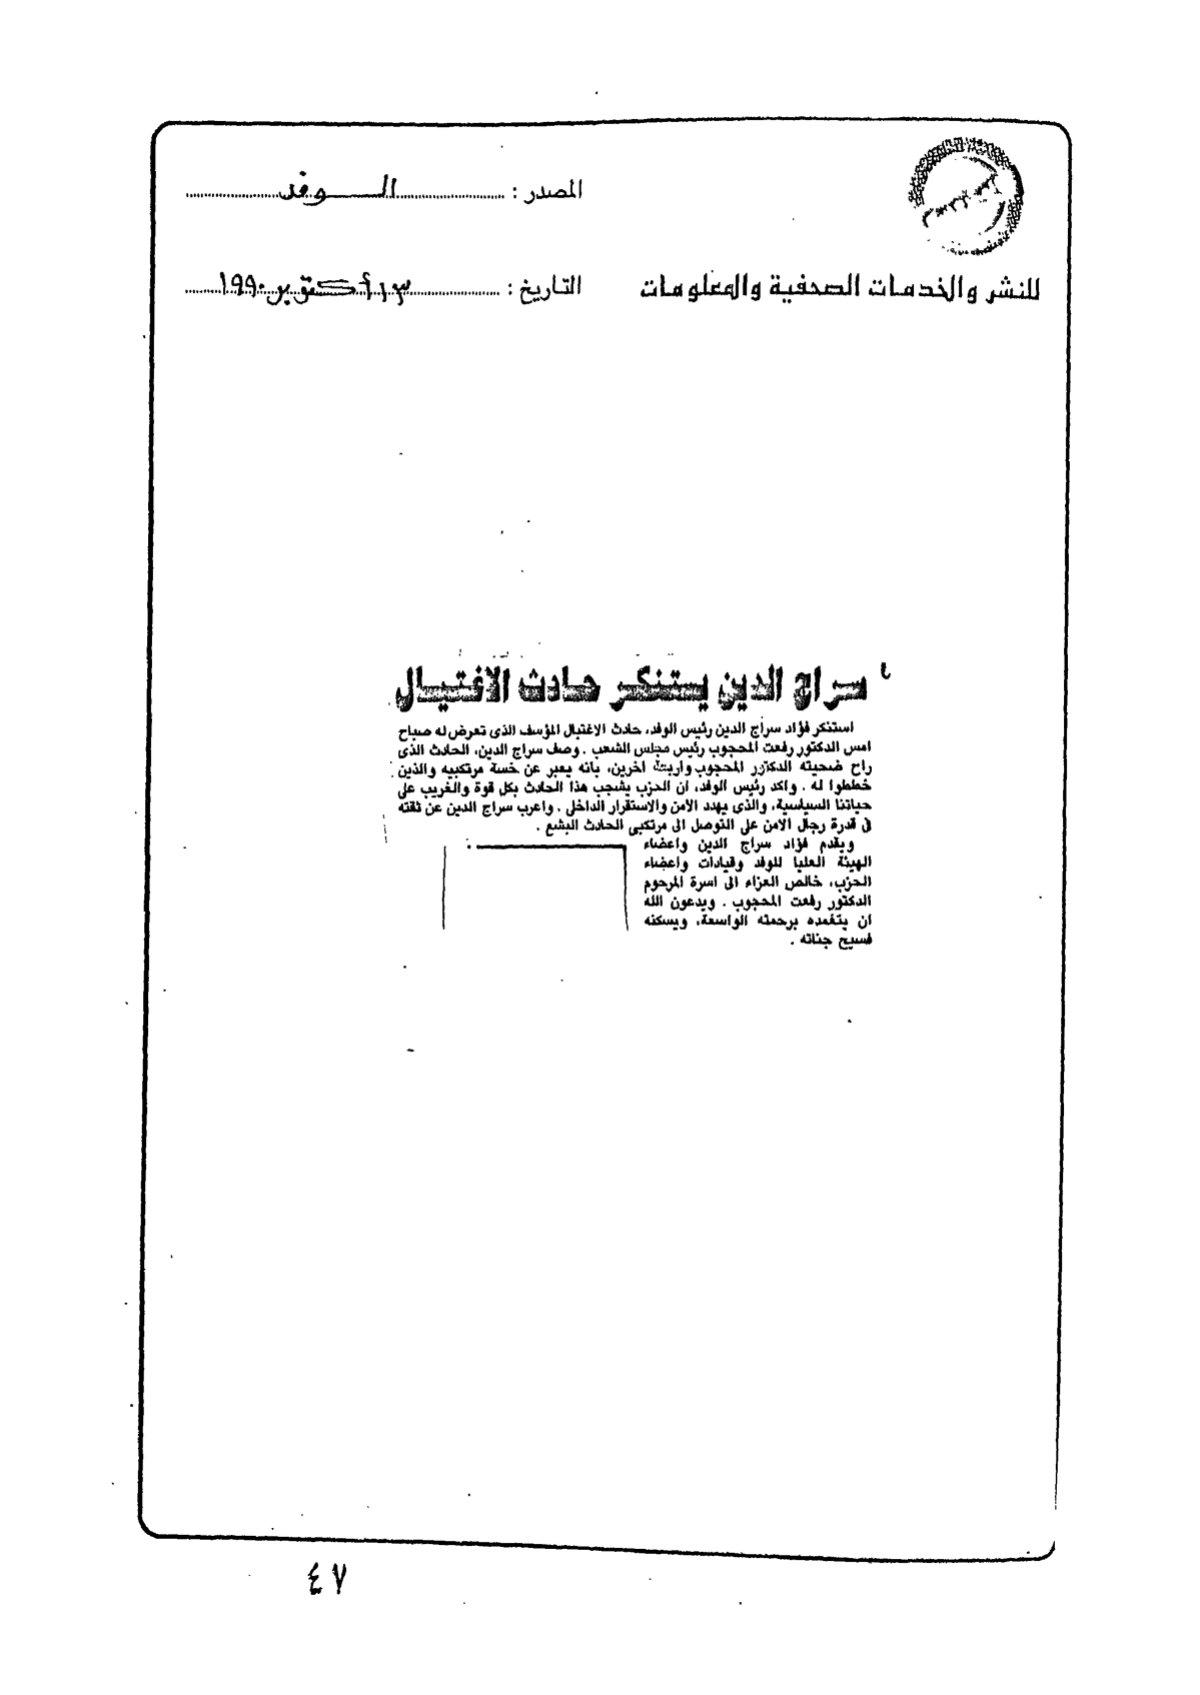 المصدر : الوفد
للنشر والخدمات الصحفية والمعلومات
التاريخ : ١٣ أكتوبر ١٩٩٠
سراج الدين يستنكر حادث الاغتيال
استنكر فؤاد سراج الدين رئيس الوفد، حادث الاغتيال المؤسف الذى تعرض له صباح
امس الدكتور رفعت المحجوب رئيس مجلس الشعب . وصف سراج الدين، الحادث الذى
راح ضحيته الدكتور المحجوب واربعة اخرين، بانه يعبر عن خسة مرتكبيه والذين
خططوا له . واكد رئيس الوفد، ان الحزب يشجب هذا الحادث بكل قوة والغريب على
حياتنا السياسية، والذى يهدد الامن والاستقرار الداخلى . واعرب سراج الدين عن ثقته
فى قدرة رجال الامن على التوصل الى مرتكبى الحادث البشع .
ويقدم فؤاد سراج الدين واعضاء
الهيئة العليا للوفد وقيادات واعضاء
الحزب، خالص العزاء الى اسرة المرحوم
الدكتور رفعت المحجوب . ويدعون الله
ان يتغمده برحمته الواسعة، ويسكنه
فسيح جناته .
٤٧